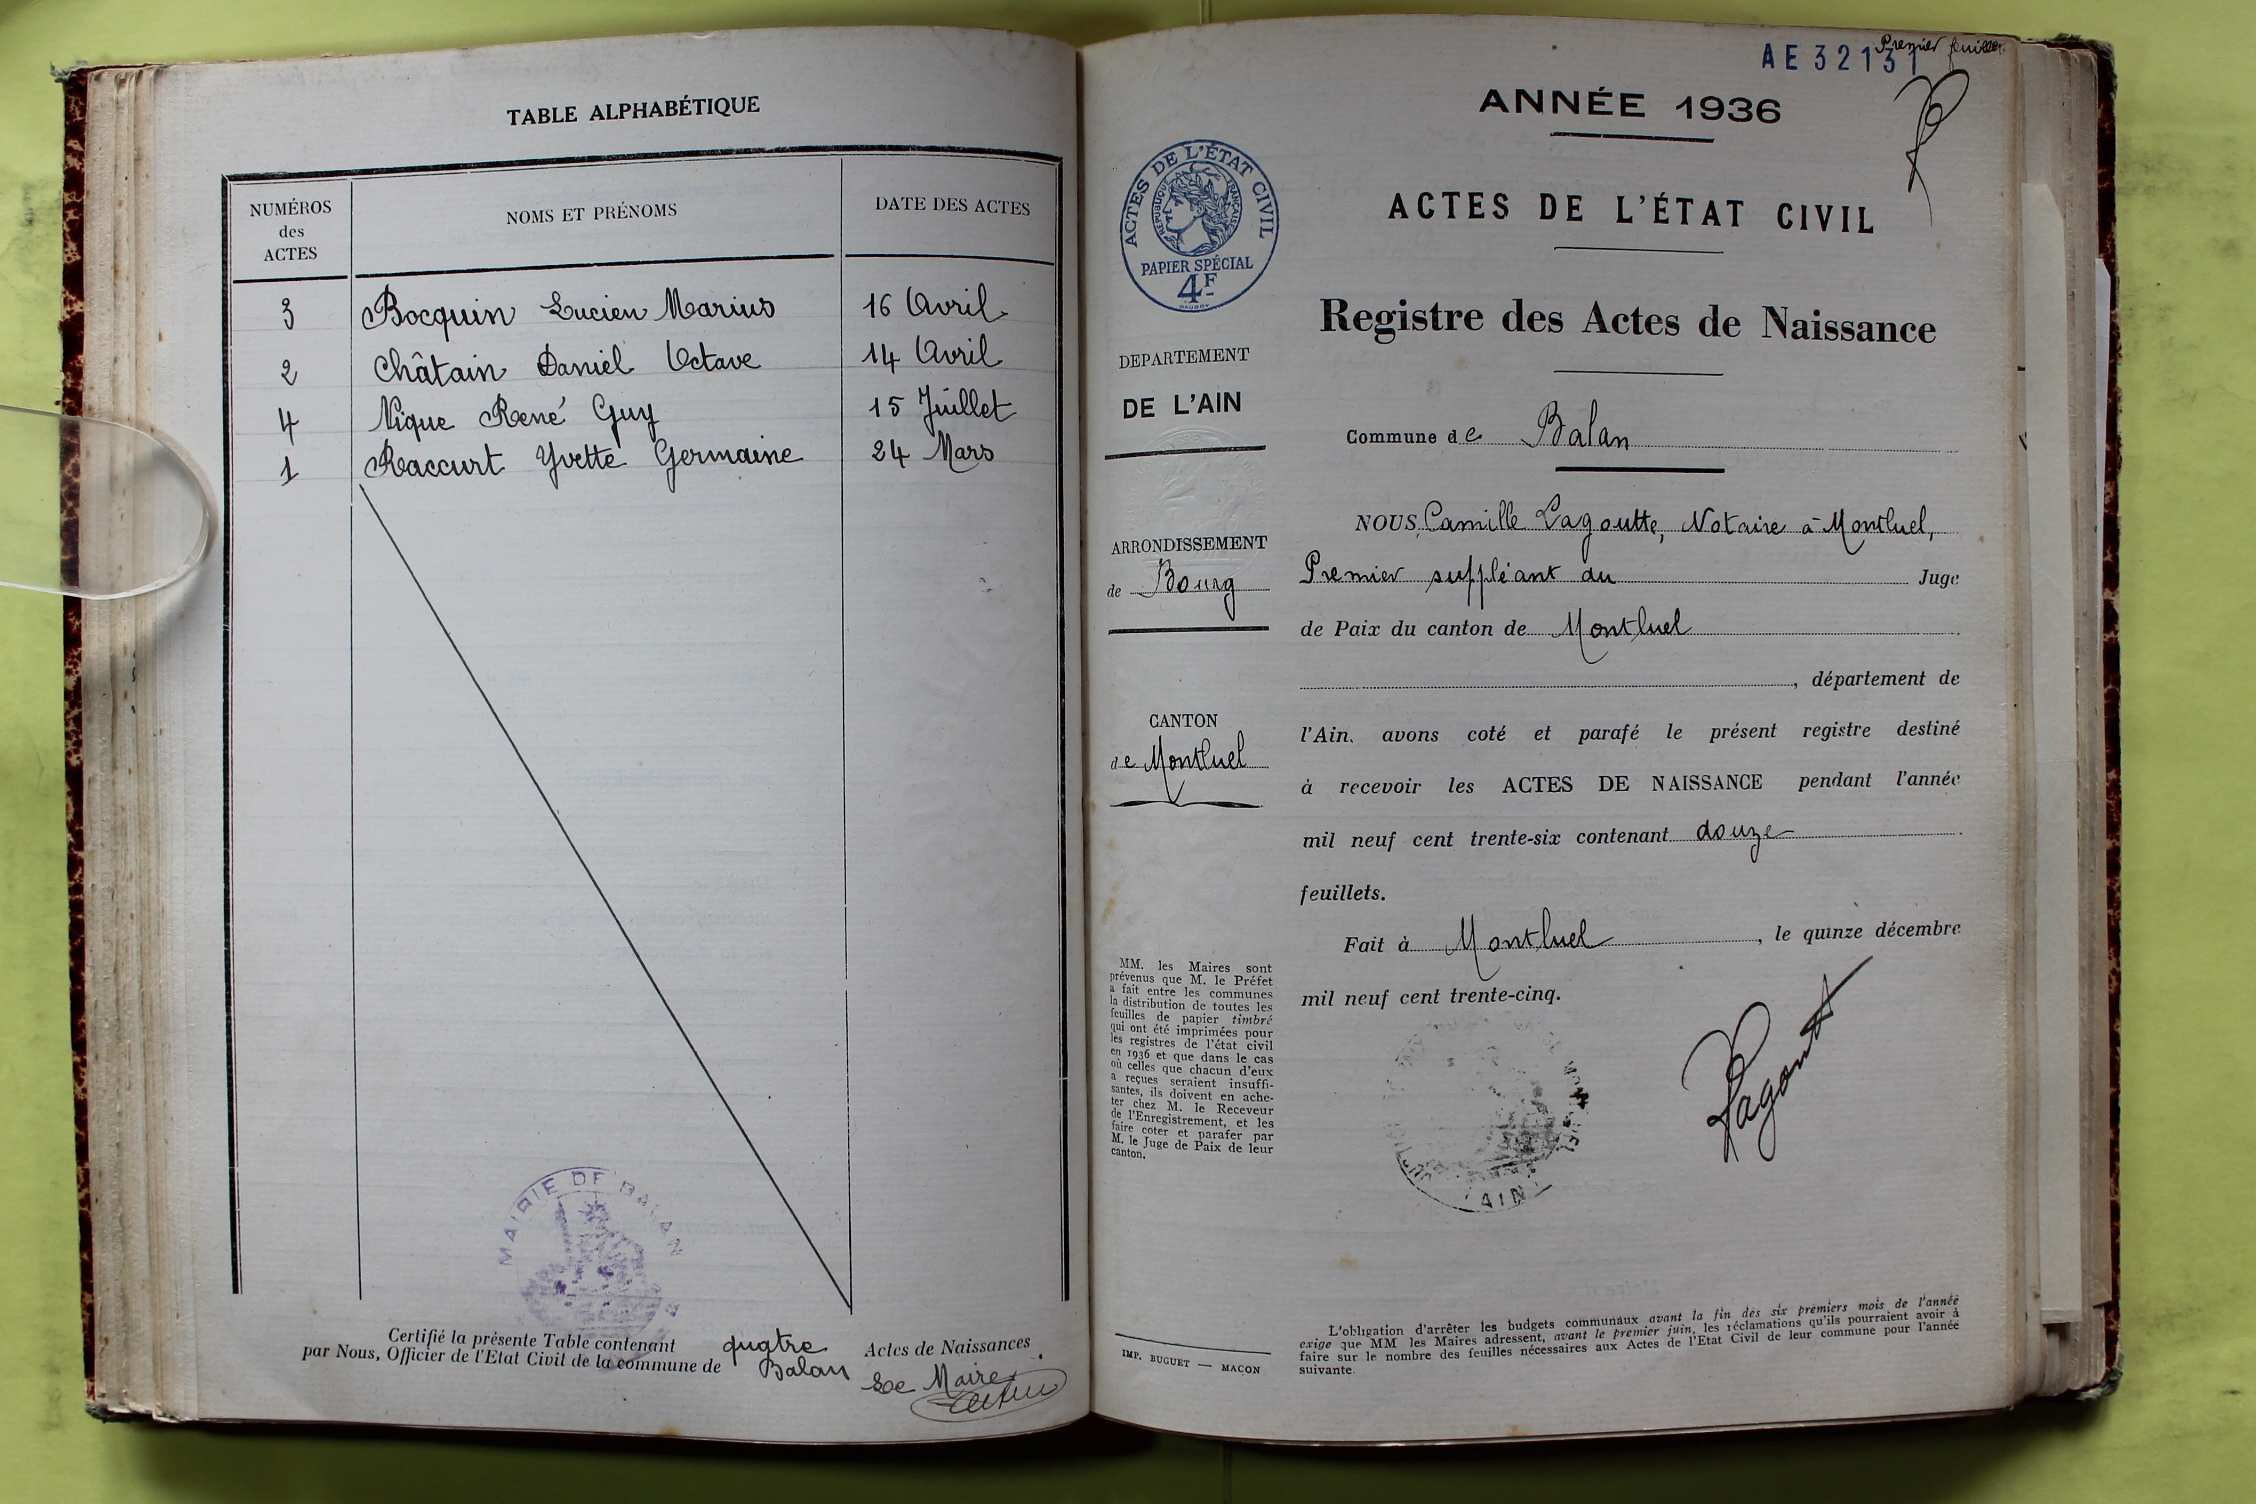 TABLE ALPHABÉTIQUE
NUMÉROS des ACTES
NOMS ET PRÉNOMS
DATE DES ACTES
3 Bocquin Lucien Marius 16 Avril
2 Châtain Daniel Octave 14 Avril
4 Nique René Guy 15 Juillet
1 Raccurt Yvette Germaine 24 Mars
MAIRIE DE BALAN
Certifié la présente Table contenant quatre Actes de Naissances
par Nous, Officier de l'Etat Civil de la commune de Balan
Le Maire
Premier feuillet.
AE 32131
ANNÉE 1936
ACTES DE L'ÉTAT CIVIL
Registre des Actes de Naissance
ACTES DE L'ÉTAT CIVIL
RÉPUBLIQUE FRANÇAISE
PAPIER SPÉCIAL
4F
DEPARTEMENT
DE L'AIN
ARRONDISSEMENT
de Bourg
CANTON
de Montluel
MM. les Maires sont
prévenus que M. le Préfet
a fait entre les communes
la distribution de toutes les
feuilles de papier timbré
qui ont été imprimées pour
les registres de l'état civil
en 1936 et que dans le cas
où celles que chacun d'eux
a reçues seraient insuffi-
santes, ils doivent en ache-
ter chez M. le Receveur
de l'Enregistrement, et les
faire coter et parafer par
M. le Juge de Paix de leur
canton.
IMP. BUGUET — MACON
Commune de Balan
NOUS, Camille Lagoutte, Notaire à Montluel,
Premier suppléant du Juge
de Paix du canton de Montluel
, département de
l'Ain, avons coté et parafé le présent registre destiné
à recevoir les ACTES DE NAISSANCE pendant l'année
mil neuf cent trente-six contenant douze
feuillets.
Fait à Montluel, le quinze décembre
mil neuf cent trente-cinq.
Lagoutte
AIN
L'obligation d'arrêter les budgets communaux avant la fin des six premiers mois de l'année
exige que MM les Maires adressent, avant le premier juin, les réclamations qu'ils pourraient avoir à
faire sur le nombre des feuilles nécessaires aux Actes de l'Etat Civil de leur commune pour l'année
suivante.